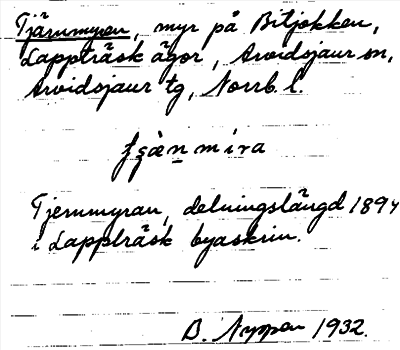 Tjärnmyran, myr på Bitjokken,
Lappträsk ägor, Arvidsjaur sn,
Arvidsjaur tg, Norrb. l.
Tjernmyran, delningslängd 1894
i Lappträsk byaskrin.
B. 1932.